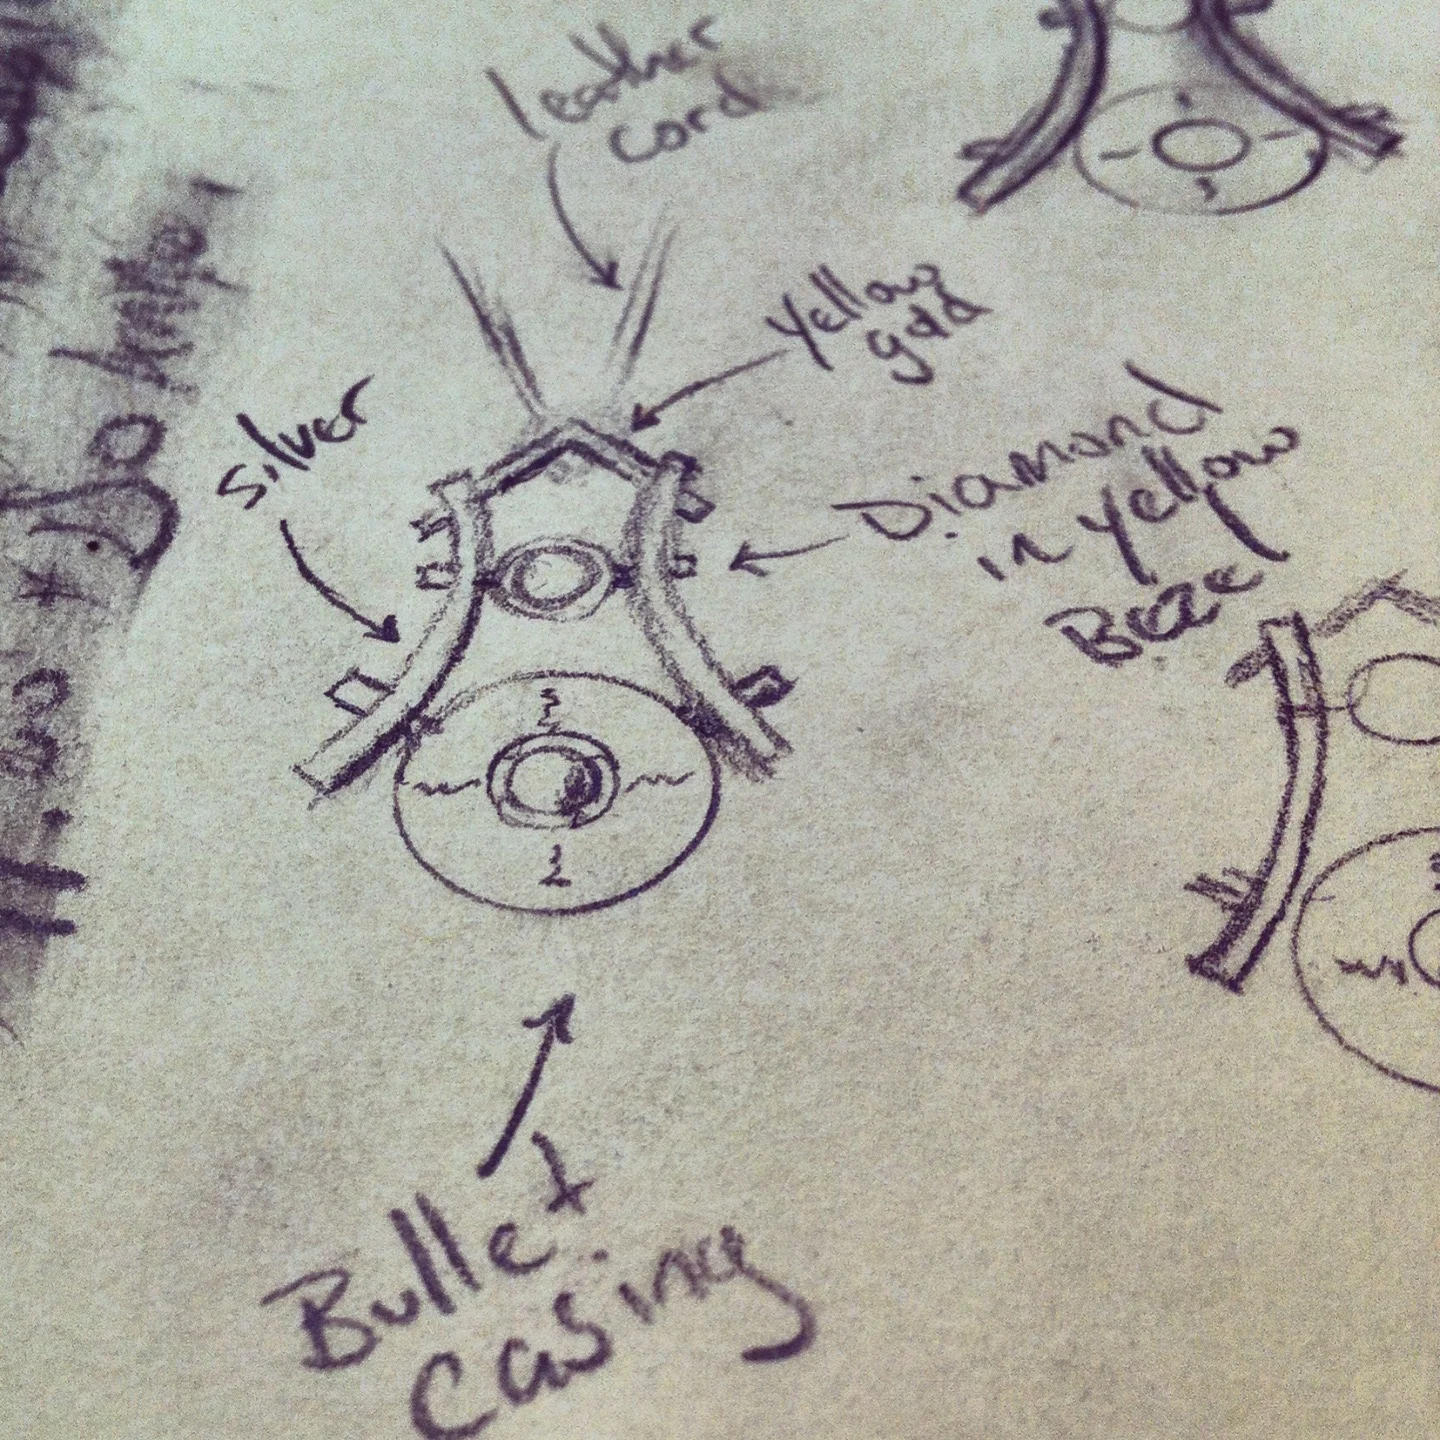 leather
cord
Yellow
gold
silver
Diamond
in Yellow
Bezel
Bullet
casing